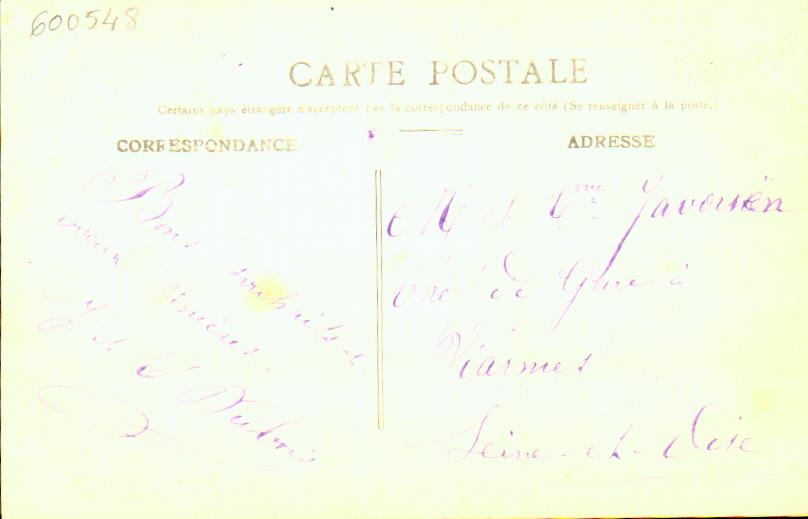 600548
CARTE POSTALE
Certains pays étrangers n'acceptent pas la correspondance de ce côté (Se renseigner à la poste.
CORRESPONDANCE
ADRESSE
Bons souhaits et
vœux sincères.
J et E
M et Mme
de Gare à
Viarmes
Seine-et-Oise